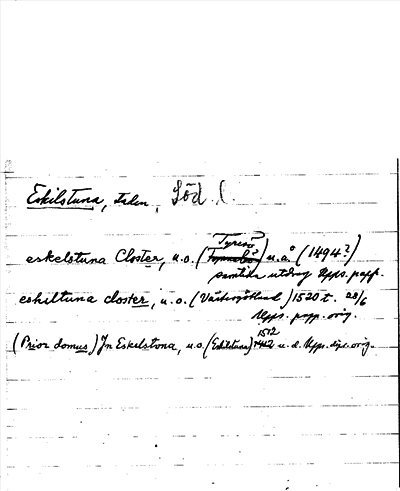 Eskilstuna, staden, Söd. l.
Tyresö
eskelstuna Closter, u.o. ( ) u.å (1494?)
samtida utdrag Upps. papp.
eskiltuna closter, u.o. (Västergötland) 1520 t. 28/6
Upps. papp. orig.
1512
(Prior domus) Jn Eskilstona, u.o. (Eskilstuna) 1412 u.d. Upps. dipl. orig.